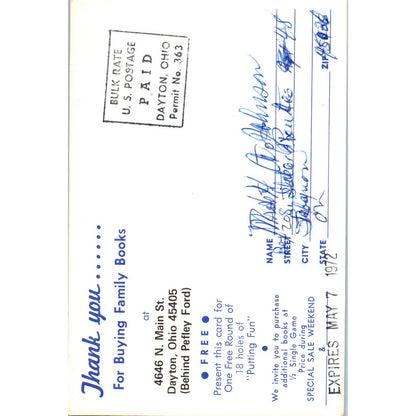 Thank you......
For Buying Family Books
at
4646 N. Main St.
Dayton, Ohio 45405
(Behind Peffley Ford)
● FREE ●
Present this card for
One Free Round of
18 holes of
"Putting Fun"
We invite you to purchase
additional books at
½ Single Game
Price during
SPECIAL SALE WEEKEND
&
EXPIRES MAY 7 1972
BULK RATE
U. S. POSTAGE
PAID
DAYTON, OHIO
Permit No. 363
NAME Johnson
STREET
CITY
STATE
ZIP